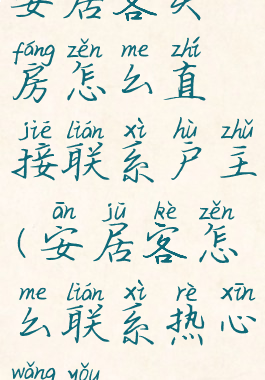 安居客
fáng zěn me zhí
房怎么直
jiē lián xì hù zhǔ
接联系户主
ān jū kè zěn
(安居客怎
me lián xì rè xīn
么联系热心
wǎng yǒu